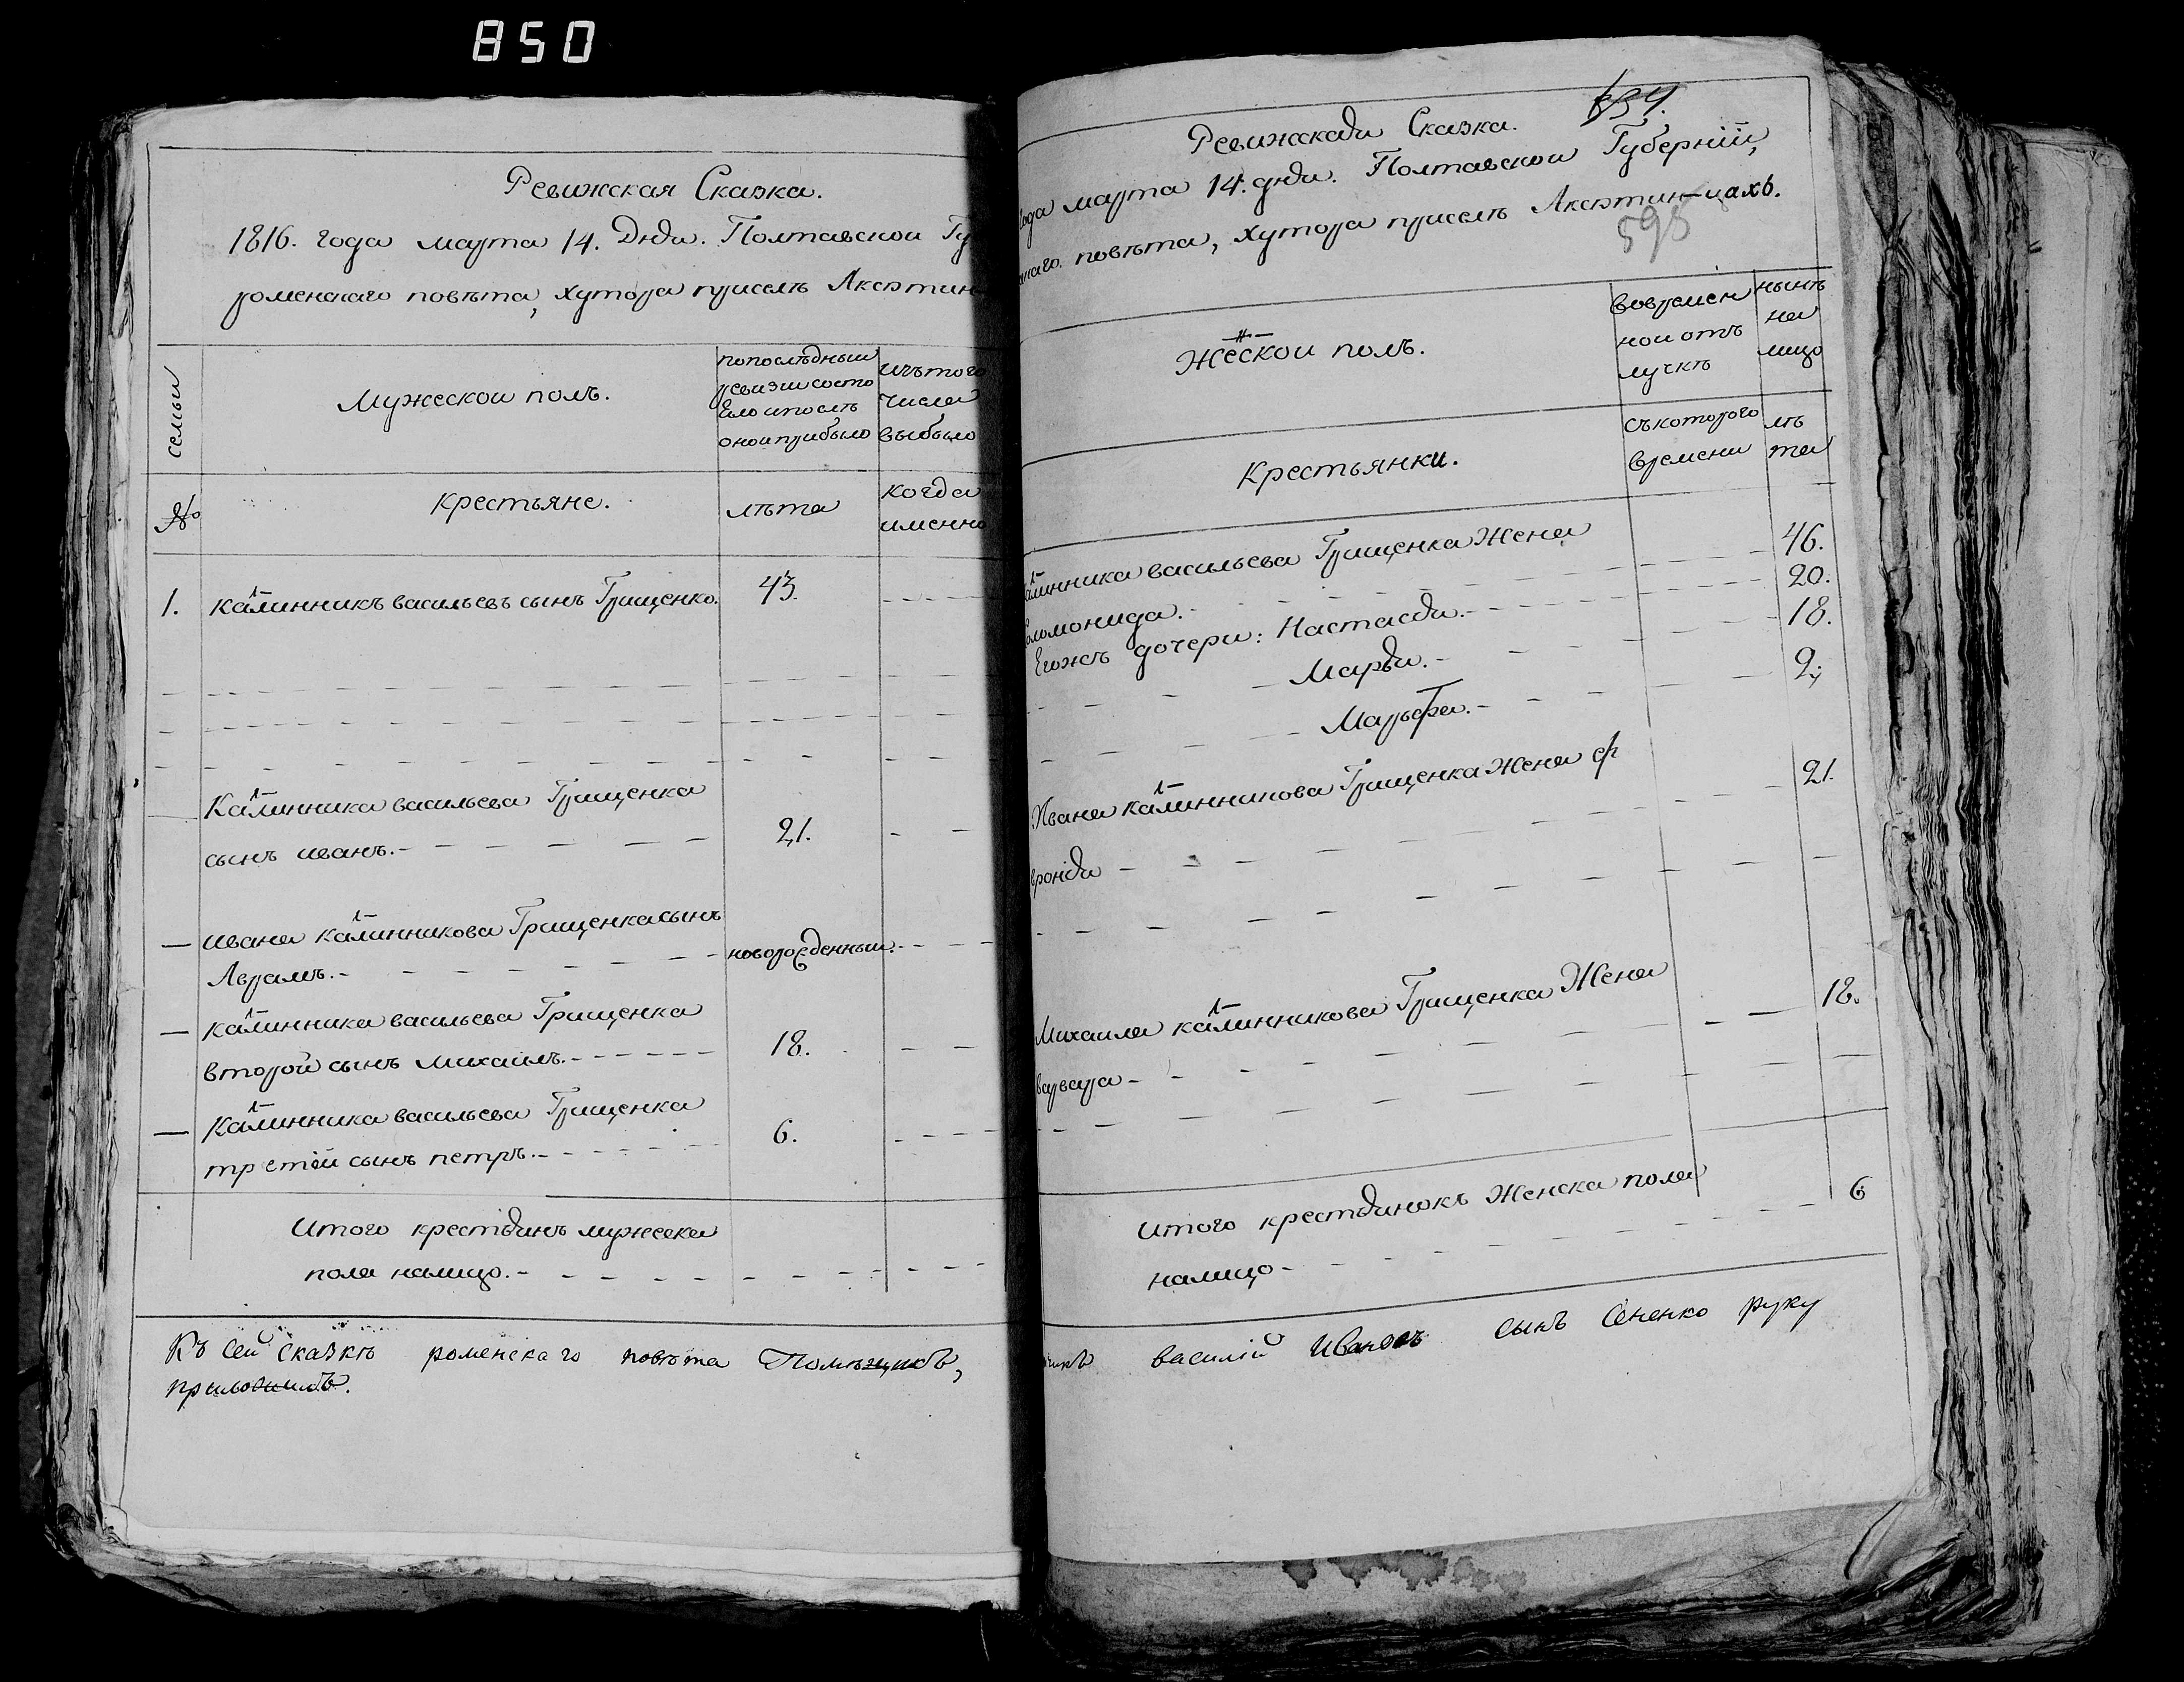 850
Ревижская Сказка.
1816. года марта 14. Дня. Полтавской Гу
роменскаго повѣта, хутора присель Аксютин
семьи
Мужеской полъ.
попослѣдным
ревизи состо
Ело ипослѣ
оной прибыло
Изъ того
числа
выбыло
№
крестьяне.
лѣта
когда
именно
1. калинникъ васильевъ сынъ Грищенко. 43.
Калинника васильева Грищенка
сынъ иванъ. 21.
ивана калинникова Грищенка сынъ
Аврамъ. новорожденный.
калинника васильева Грищенка
второй сынъ Михаилъ. 18.
Калинника васильева Грищенка
третей сынъ петръ. 6.
Итого крестьянъ мужеска
пола налицо.
Къ сей сказкѣ роменскаго повѣта Помѣщикъ,
приложилъ.
634.
Ревижская Сказка.
года марта 14. дня. Полтавской Губерніи,
наго повѣта, хутора приселѣ Аксютин-цахъ.
595
Жеской полъ.
н
вовремен
ной отъ
лучкѣ
нынѣ
на
лицо
Крестьянки.
съкоторого
времени
лѣ
та
алинника васильева Грищенка Жена
оломонида. 46.
Егожъ дочери: Настасья. 20.
Марья. 18.
Марьфа. 2,
Ивана калинникова Грищенка Жена еф
вронія 21.
Михаила калинникова Грищенка Жена
варвара 18.
Итого крестьянокъ Женска пола
налицо 6
щикъ василій Ивановъ сынъ Сененко руку